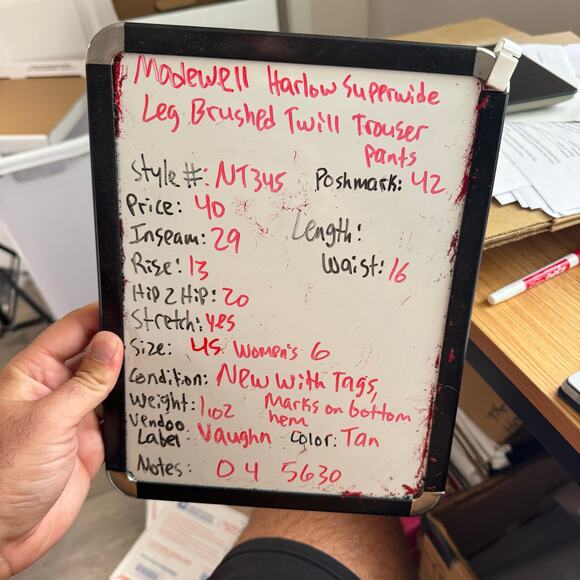 Madewell Harlow Superwide
Leg Brushed Twill Trouser
pants
Style #: NT345 Poshmark: 42
Price: 40
Inseam: 29 Length:
Rise: 13 Waist: 16
Hip 2 Hip: 20
Stretch: yes
Size: US Women's 6
Condition: New With Tags,
Weight: 1 oz Marks on bottom
hem
Vendoo
Label: Vaughn Color: Tan
Notes: D 4 5630